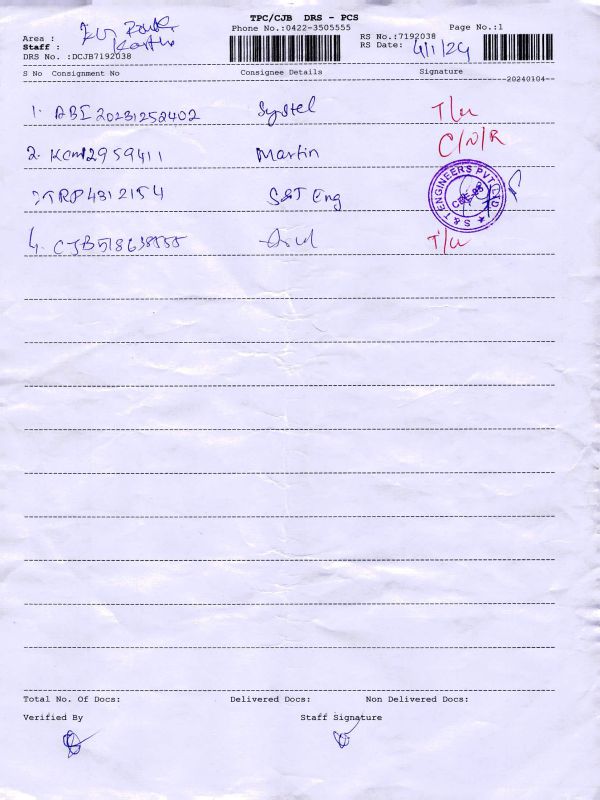 TPC/CJB DRS - PCS
Phone No.:0422-3505555
Page No.:1
Area :
Staff :
RS No.:7192038
RS Date: 4/1/24
DRS No. :DCJB7192038
S No Consignment No Consignee Details Signature
20240104
1. ABI 20231252402 Systel T/w
2. KCM12959411 Martin C/N/R
TRP4312154 S&T Eng
S & T ENGINEERS PVT LTD
4. CJB518638555 T/w
Total No. Of Docs: Delivered Docs: Non Delivered Docs:
Verified By Staff Signature